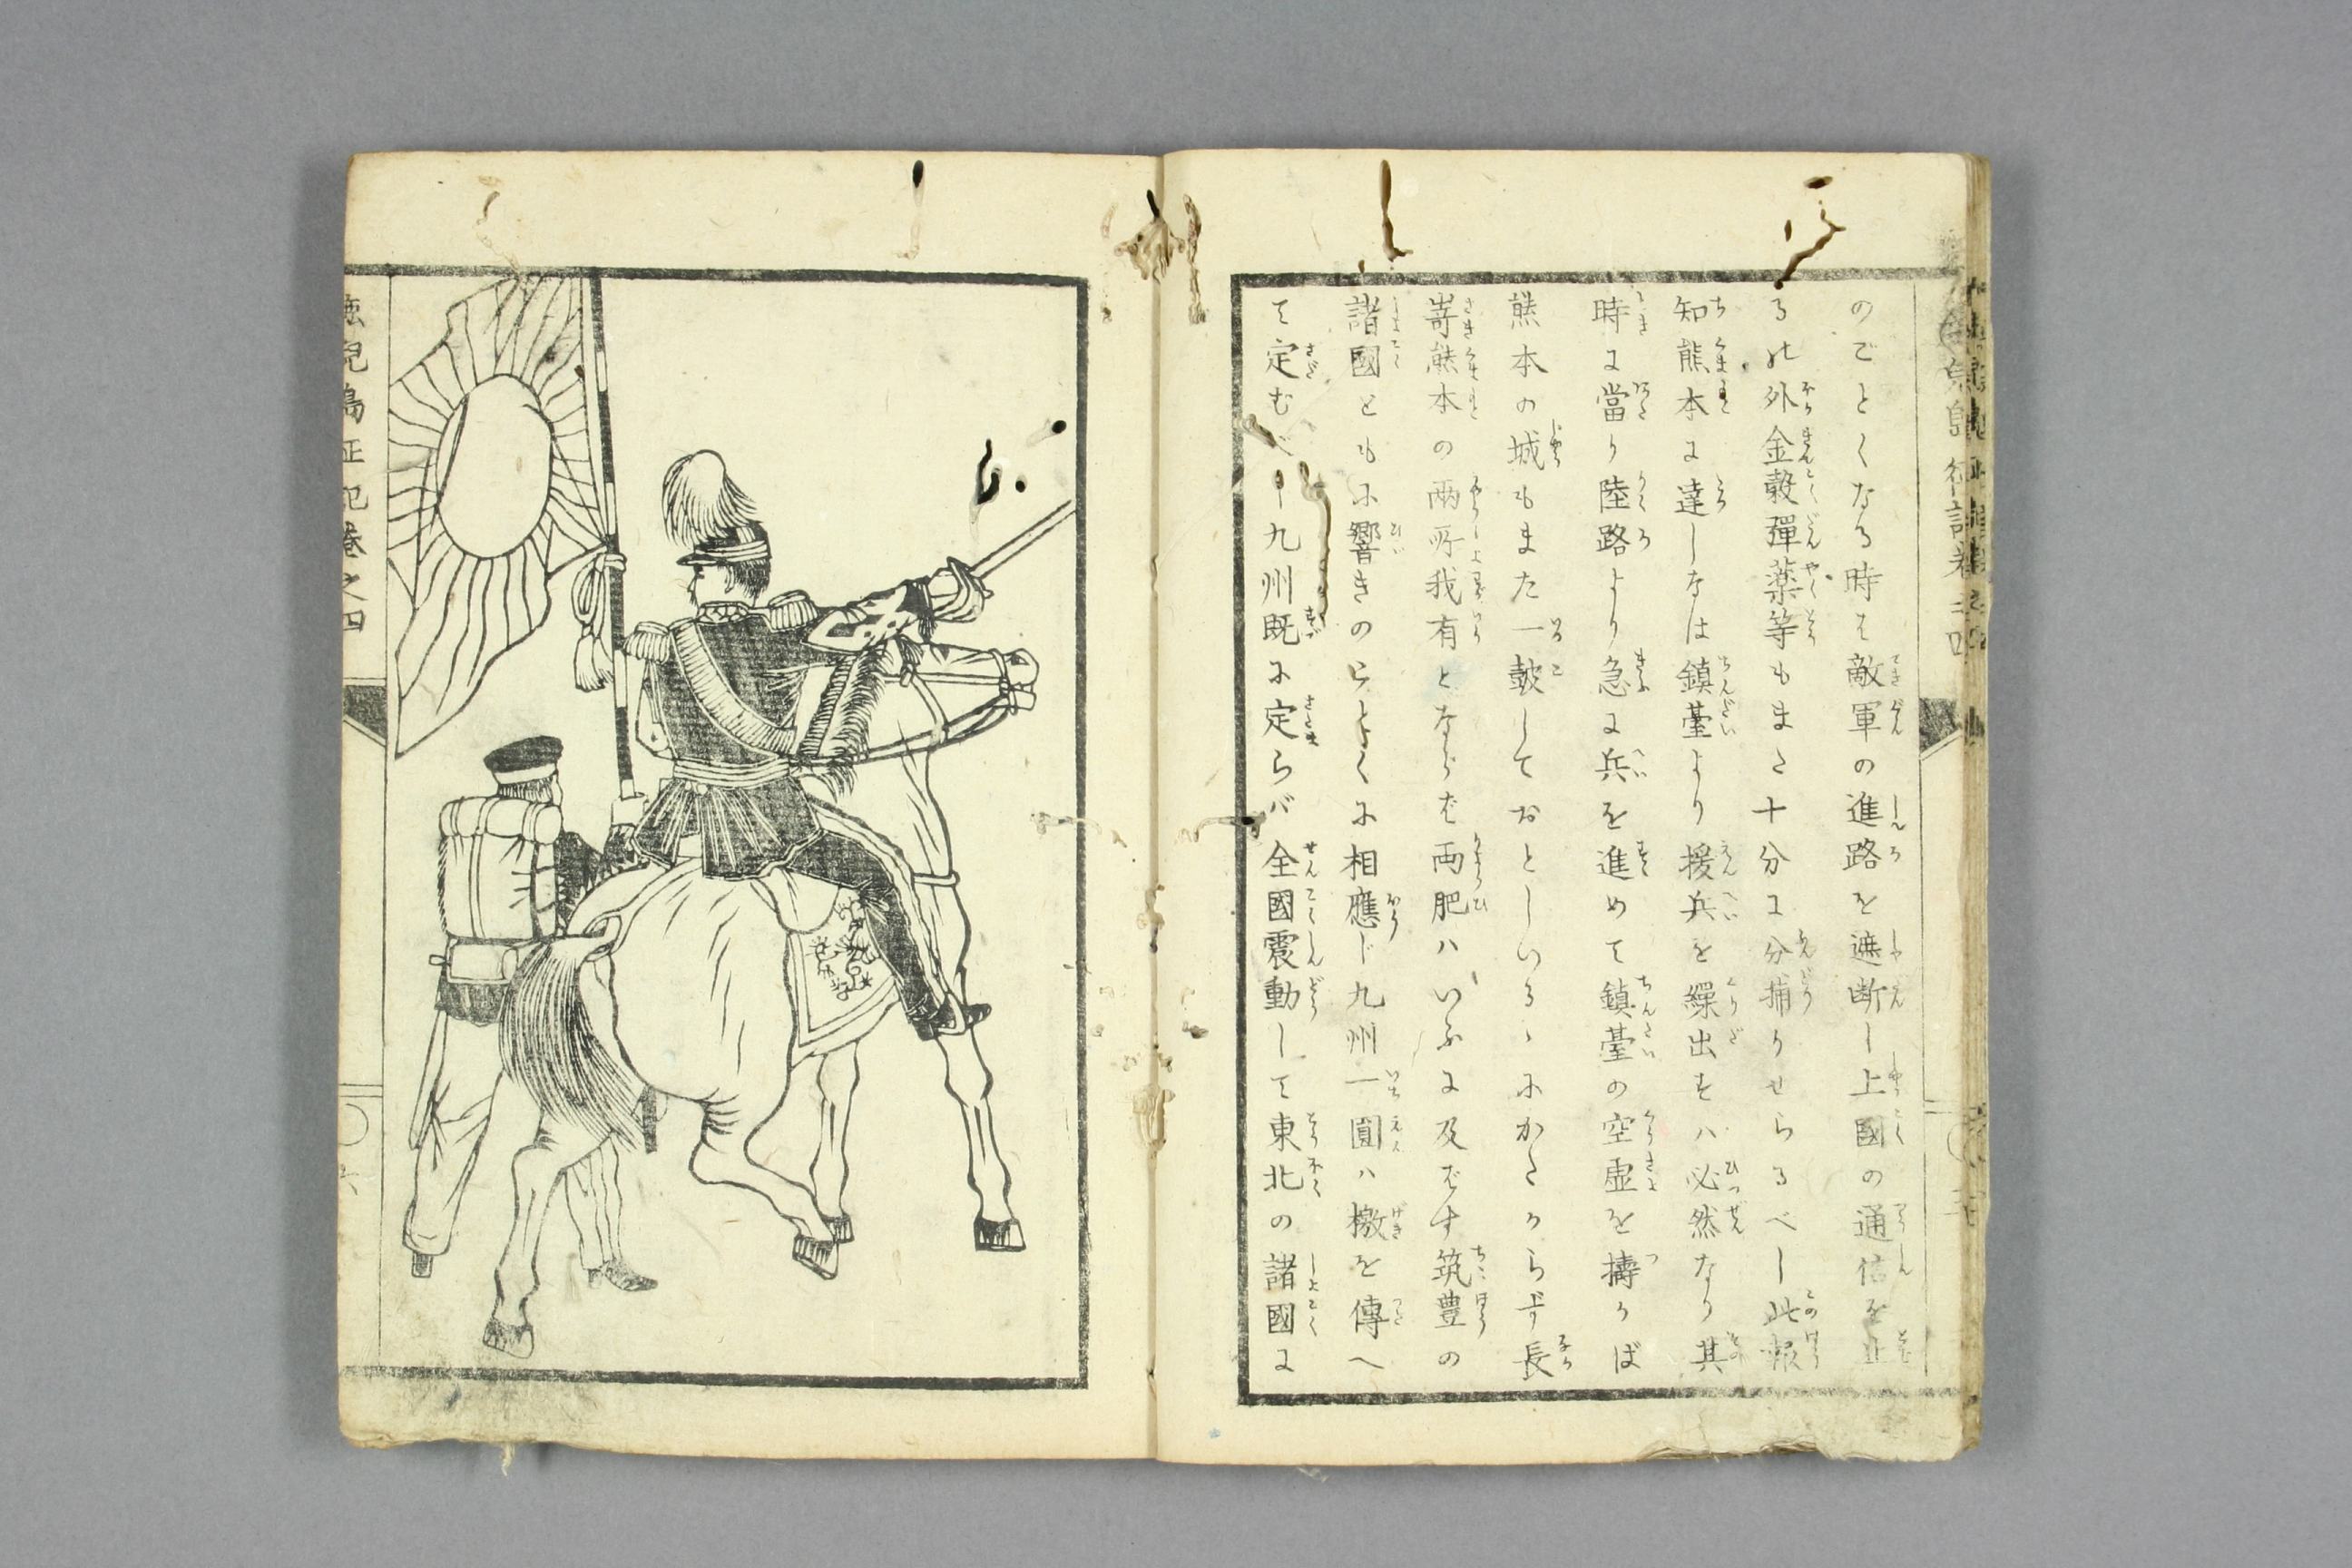 のごとくなる時は敵軍の進路を遮断し上國の通信を止
るの外金穀彈薬等もまた十分に分捕りせらるべし此報
知熊本に達しなは鎮臺より援兵を繰出すハ必然なり其
時に當り陸路より急に兵を進めて鎮臺の空虚を擣かば
熊本の城もまた一皷しておとしいるゝにかたからず長
嵜熊本の兩所我有とならば両肥ハいふに及ばす筑豊の
諸國ともに響きのごとくに相應じ九州一圓ハ檄を傳へ
て定むべし九州既に定らバ全國震動して東北の諸國に
兒島征記巻之四